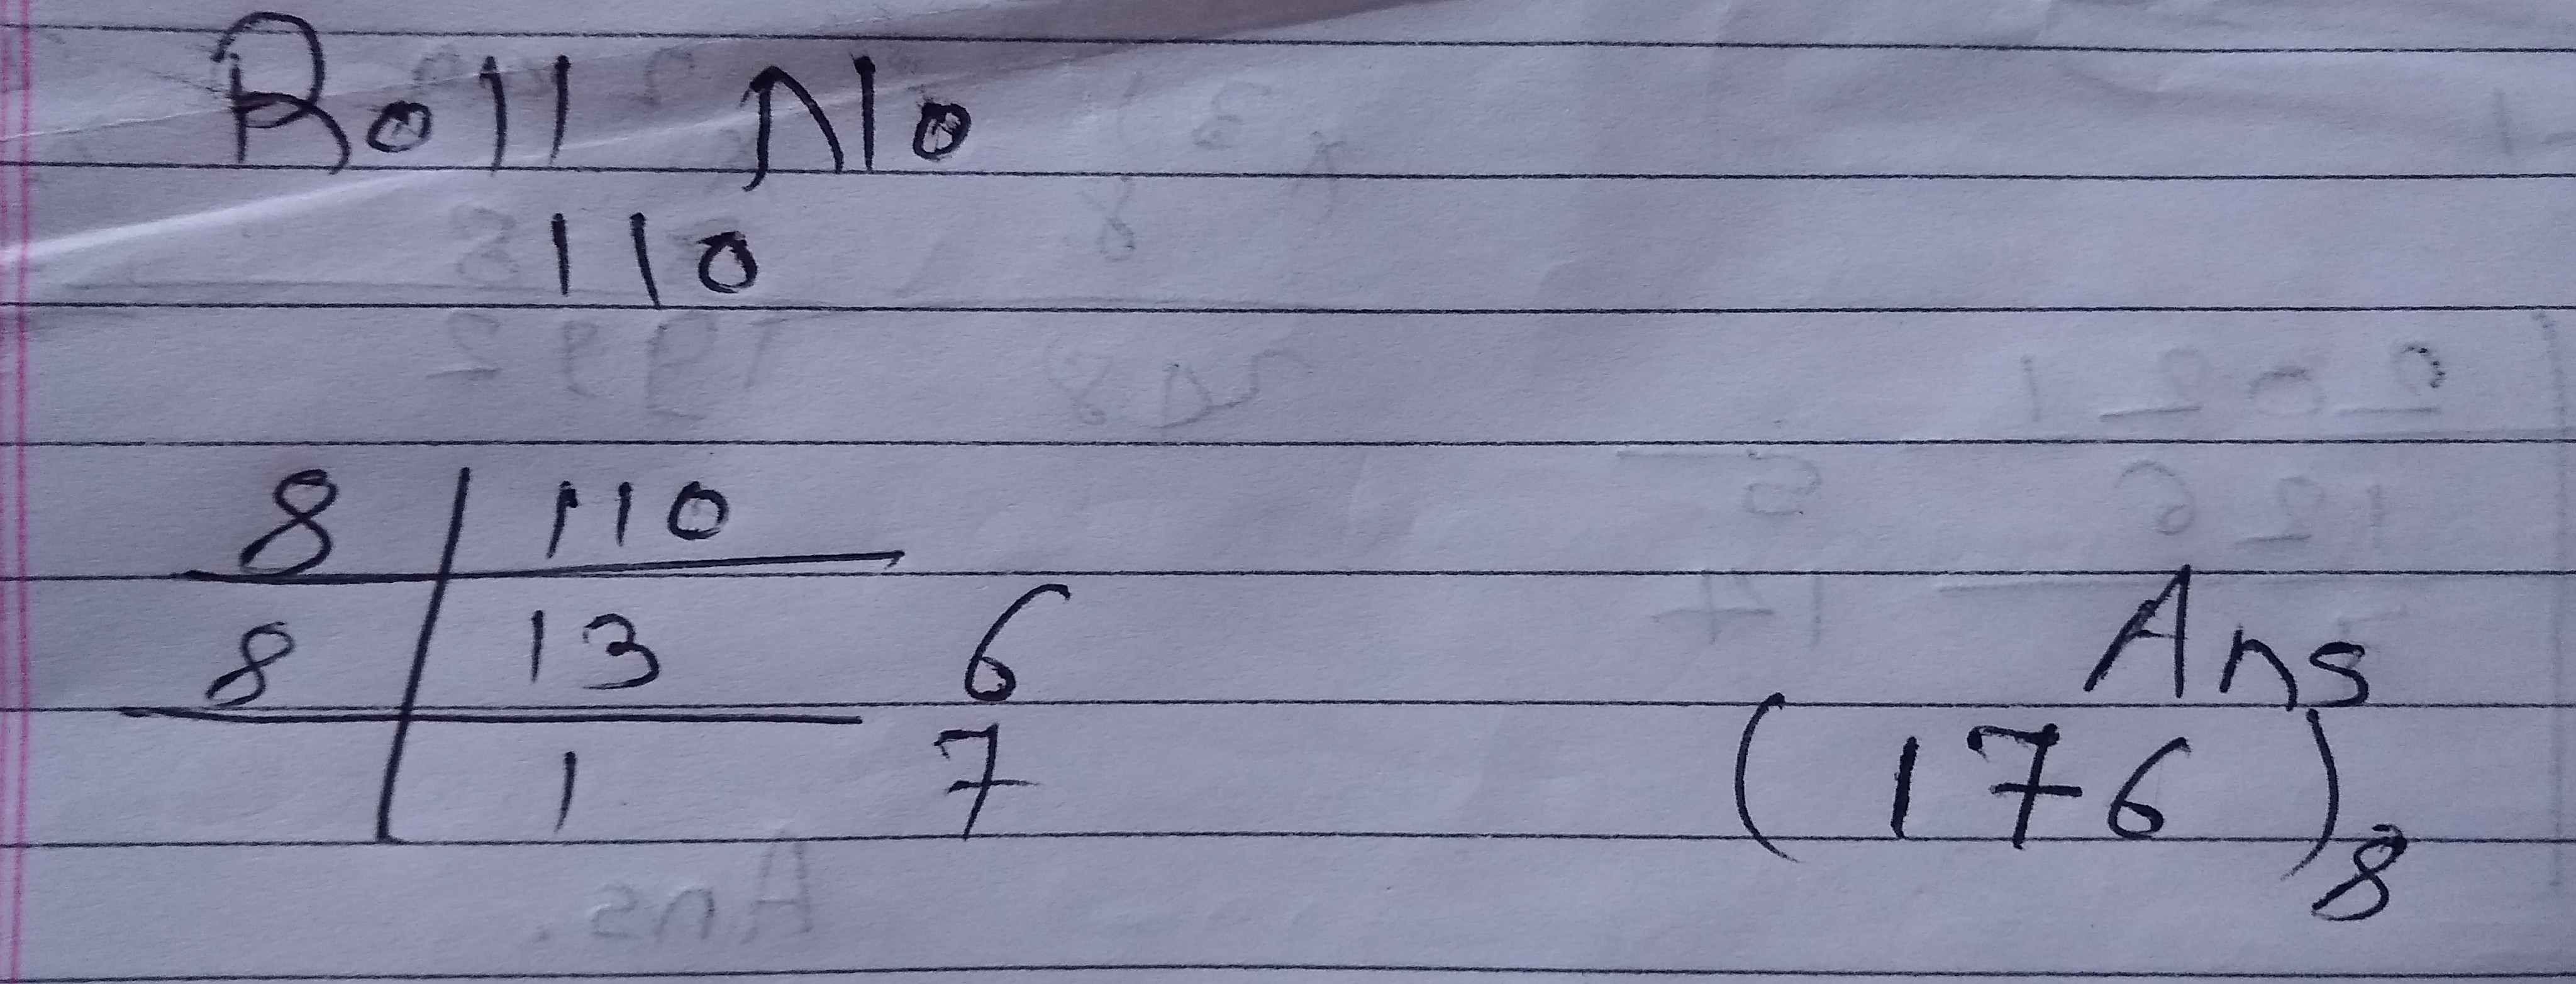 Roll No
110
8 | 110
8 | 13 6
1 7
Ans
(176)8